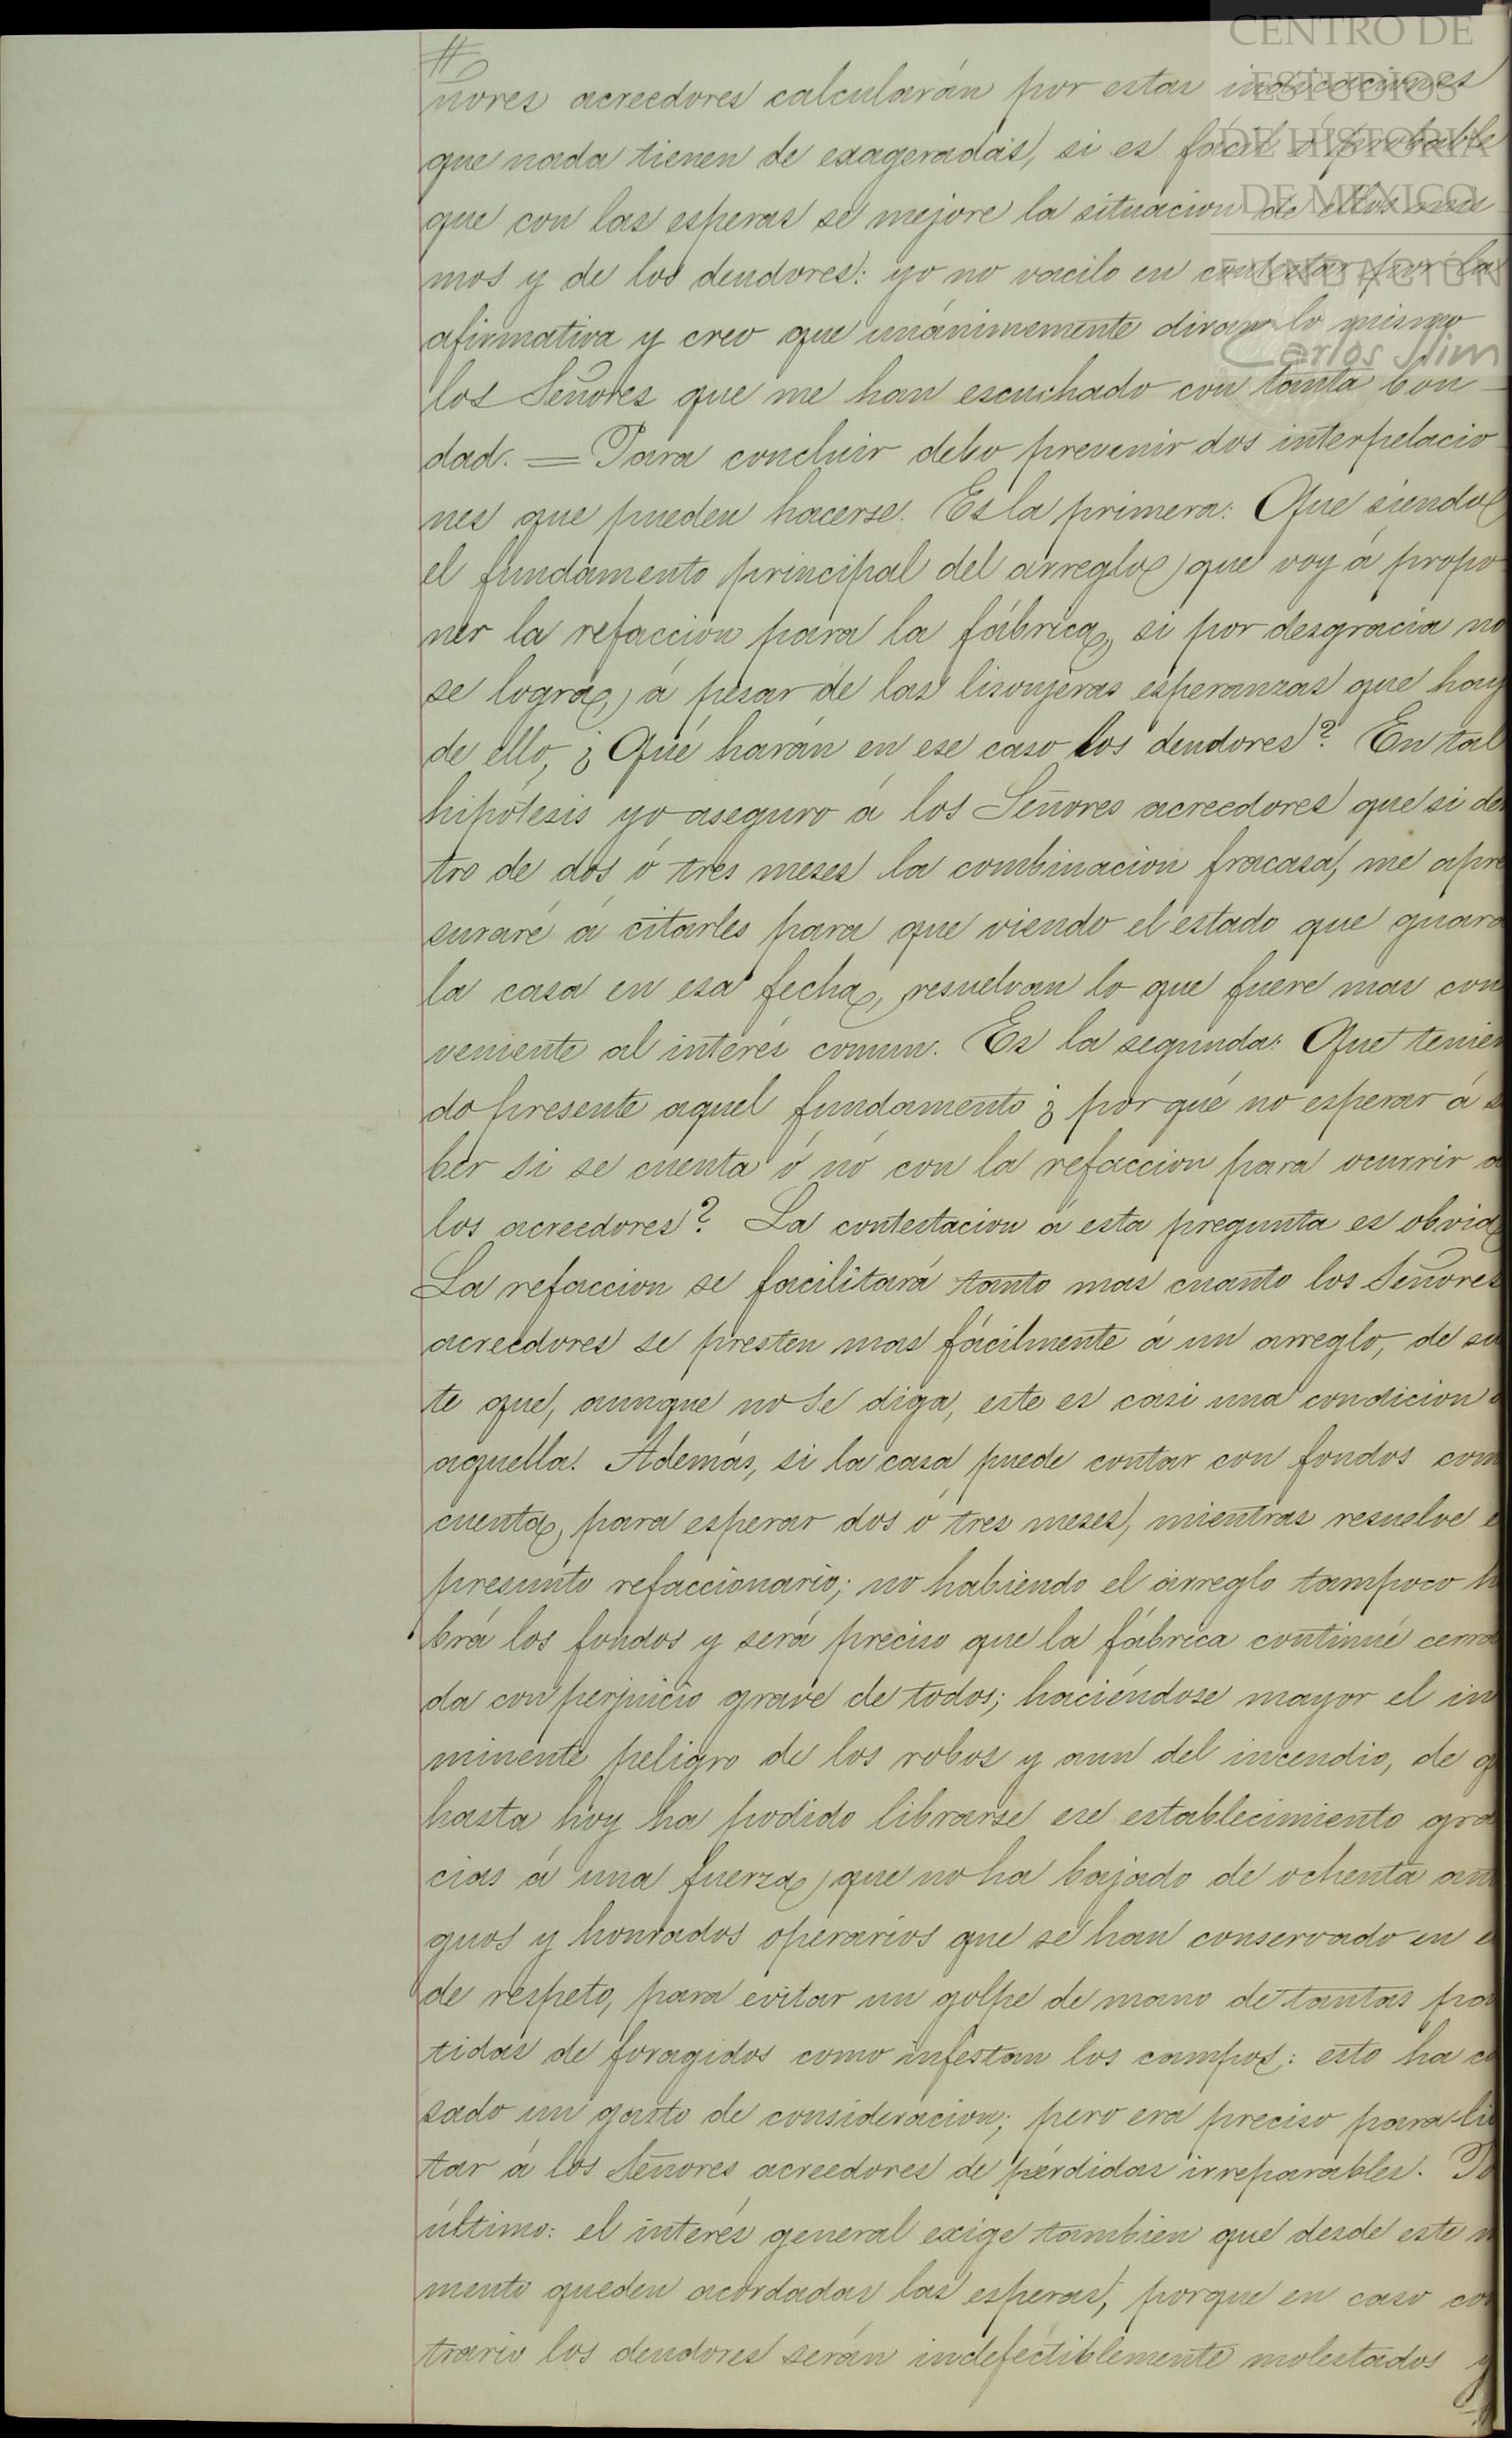 CENTRO DE
ESTUDIOS
DE HISTORIA
DE MEXICO
FUNDACIÓN
Carlos Slim
ñores acreedores calcularán por estas indicaciones
que nada tienen de exageradas, si es fácil ó probable
que con las esperas se mejore la situacion de ellos mis
mos y de los deudores: yo no vacilo en contestar por la
afirmativa y creo que unánimemente diran lo mismo
los Señores que me han escuchado con tanta bon-
dad. = Para concluir debo prevenir dos interpelacio
nes que pueden hacerse. Es la primera: Que siendo
el fundamento principal del arreglo que voy á propo
ner la refaccion para la fábrica, si por desgracia no
se logra, á pesar de las lisonjeras esperanzas que hay
de ello, ¿Qué harán en ese caso los deudores? En tal
hipótesis yo aseguro á los Señores acreedores que si de
tro de dos ó tres meses la combinacion fracasa, me apre
suraré á citarles para que viendo el estado que guard
la casa en esa fecha, resuelvan lo que fuere mas con
veniente al interés comun. Es la segunda: Que tenien
do presente aquel fundamento ¿por qué no esperar á s
ber si se cuenta ó nó con la refaccion para ocurrir a
los acreedores? La contestacion á esta pregunta es obvia
La refaccion se facilitará tanto mas cuanto los Señores
acreedores se presten mas fácilmente á un arreglo, de su
te que, aunque no se diga, este es casi una condicion
aquella. Además, si la casa puede contar con fondos com
cuenta, para esperar dos ó tres meses, mientras resuelve e
presunto refaccionario; no habiendo el arreglo tampoco h
brá los fondos y será preciso que la fábrica continúe cerra
da con perjuicio grave de todos; haciéndose mayor el in
minente peligro de los robos y aun del incendio, de q
hasta hoy ha podido librarse ese establecimiento gra
cias á una fuerza, que no ha bajado de ochenta an
guos y honrados operarios que se han conservado en e
de respeto, para evitar un golpe de mano de tantas pa
tidas de foragidos como infestan los campos: esto ha c
sado un gasto de consideracion; pero era preciso para li
tar á los Señores acreedores de pérdidas irreparables. Po
último: el interés general exige tambien que desde este m
mento queden acordadas las esperas, porque en caso con
trario los deudores serán indefectiblemente molestados y